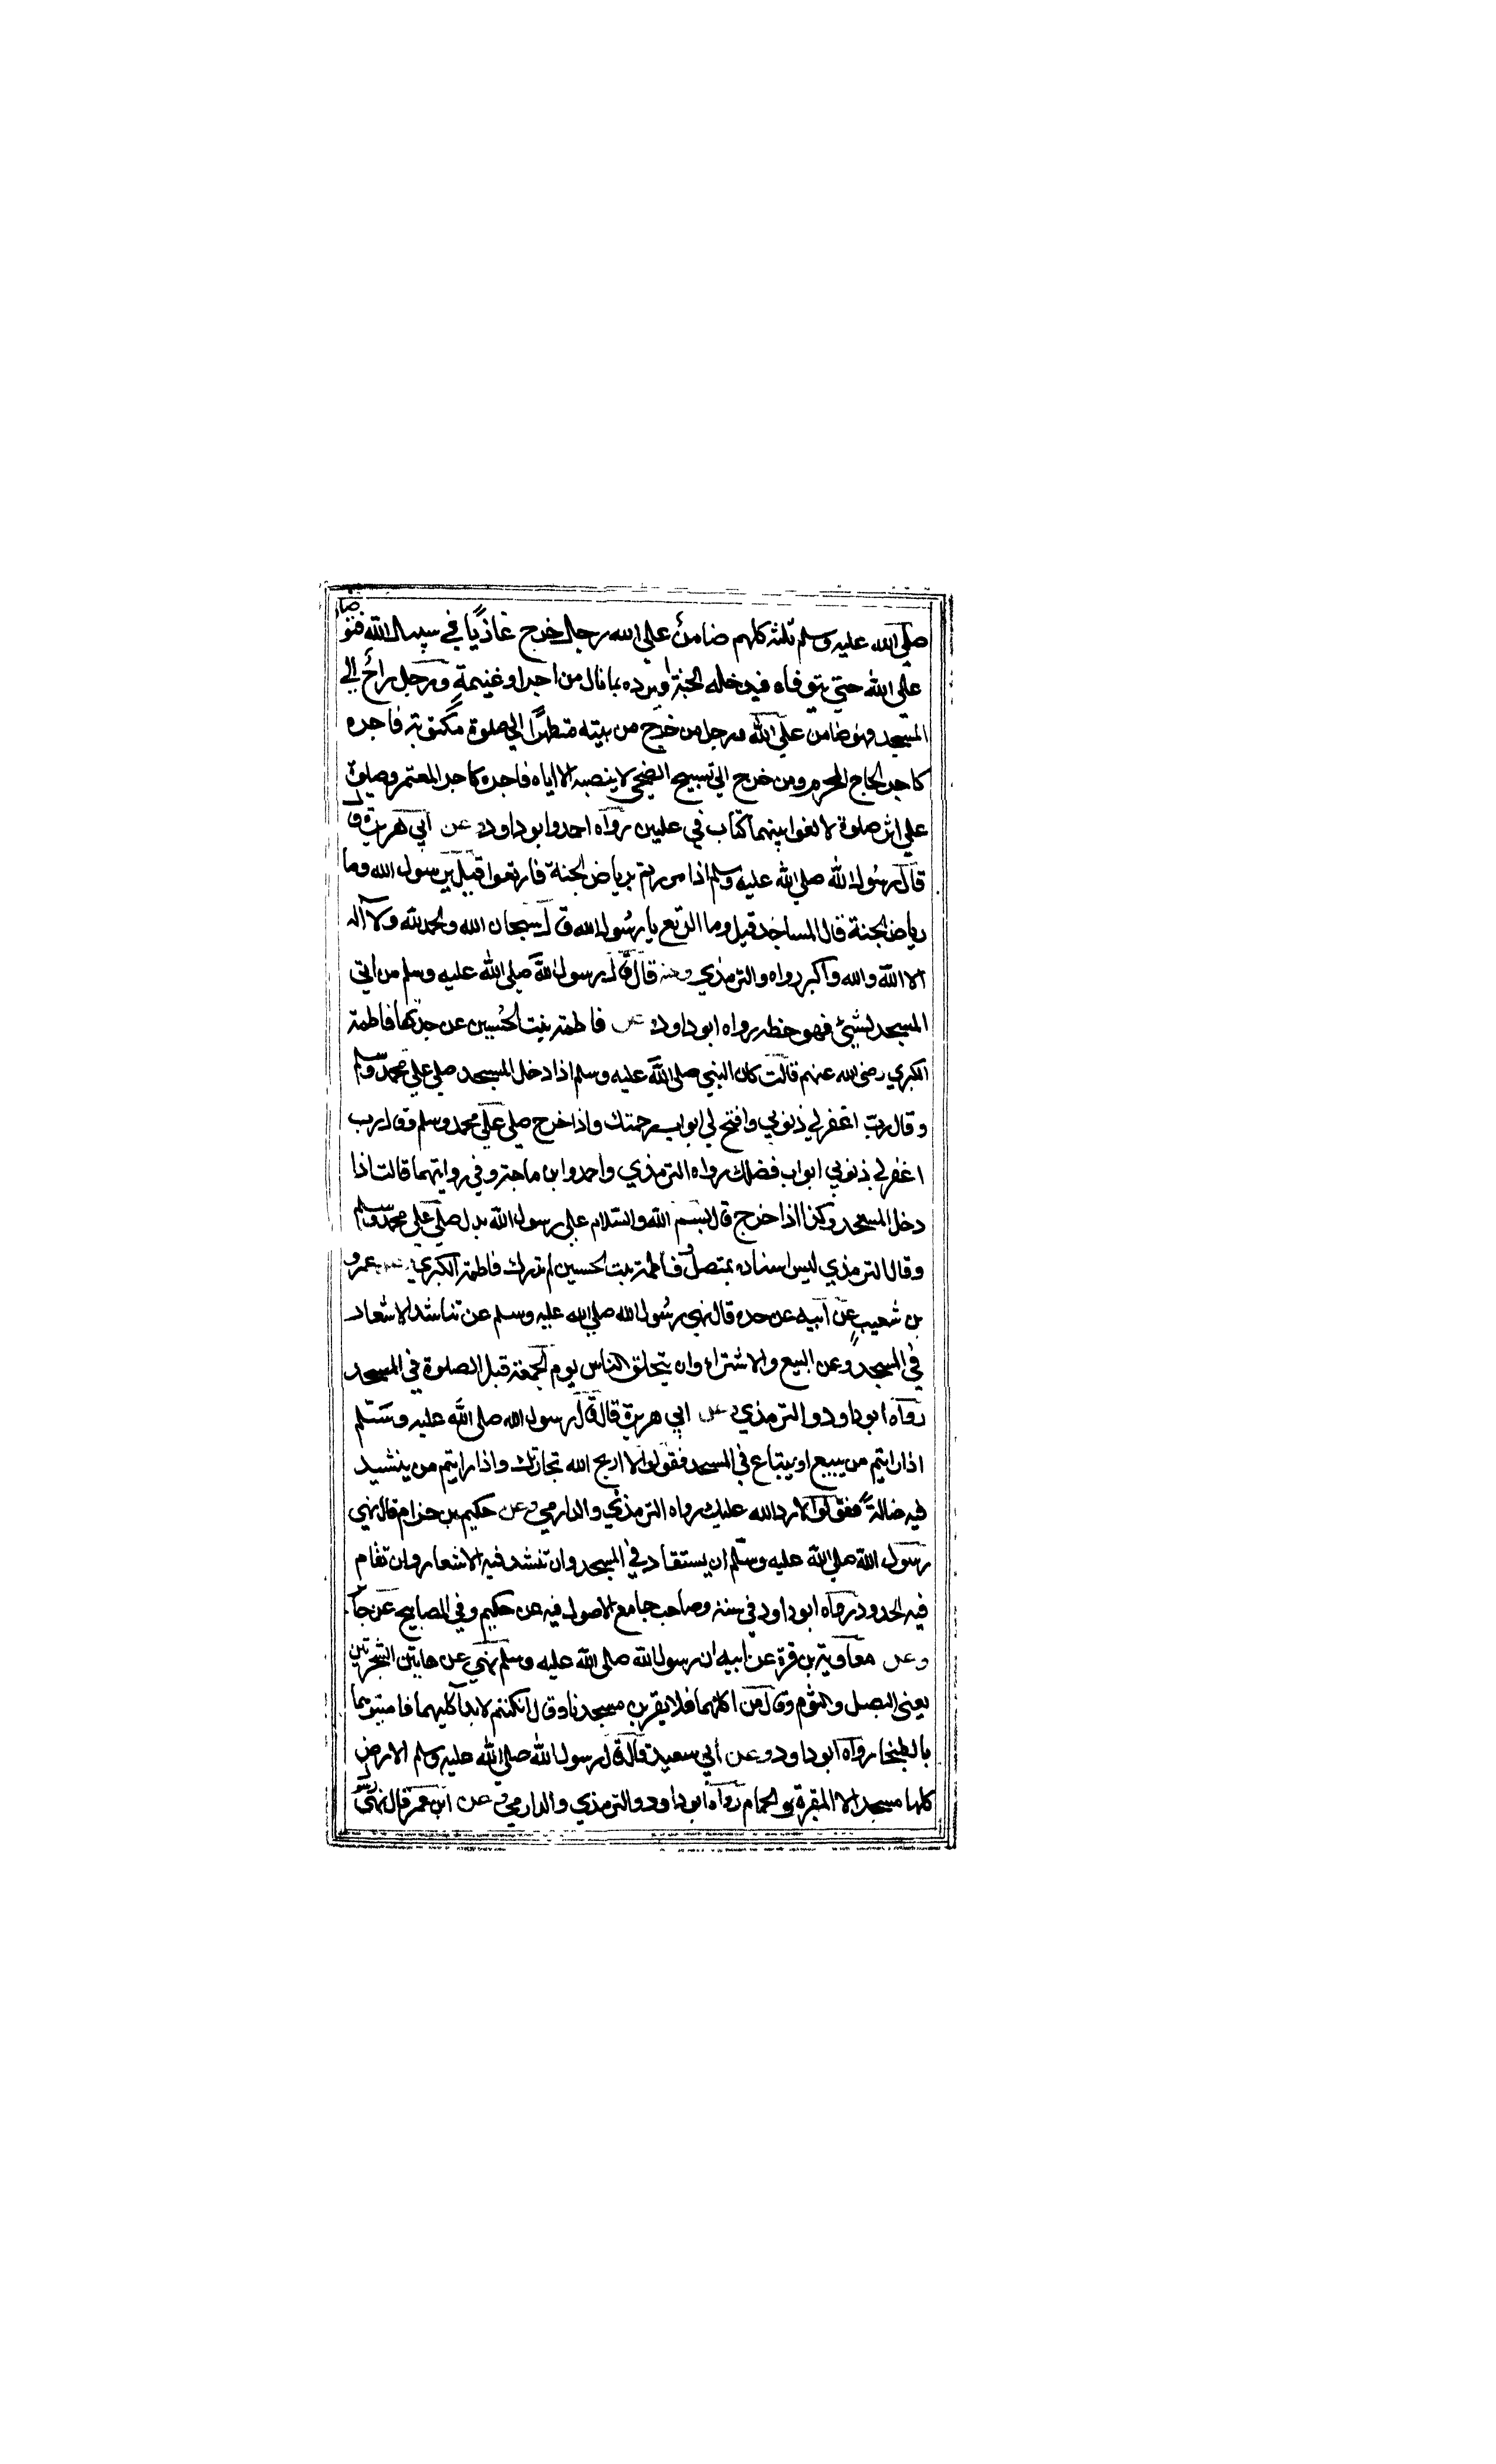 صلي الله عليه وسلم ثلثة كلهم ضامن علي الله رجل خرج غازيا في سبيل الله فهو ضامن
علي الله حتي يتوفاه فيدخله الجنة او يرده بما نال من اجر او غنيمة ورجل رائح الي
المسجد فهو ضامن علي الله ورجل من خرج من بيته متطهرا الي صلوة مكتوبة فاجره
كاجر الحاج المحرم ومن خرج الي تسبيح الضحي لا ينصبه الا اياه فاجره كاجر المعتمر وصلوة
علي اثر صلوة لا لغوا بينهما كتاب في عليين رواه احمد وابو داود عن ابي هريرة ق
قال رسول الله صلي الله عليه وسلم اذا مررتم برياض الجنة فارتعوا قيل يرسول الله وما
رياض الجنة قال المساجد قيل وما الرتع يا رسول الله قال سبحان الله والحمد لله ولا اله
الا الله والله واكبر رواه والترمذي وعنه قال قال رسول الله صلي الله عليه وسلم من اتي
المسجد لشيئ فهو حظه رواه ابو داود عن فاطمة بنت الحسين عن جدتها فاطمة
الكبري رضي الله عنهم قالت كان النبي صلي الله عليه وسلم اذا دخل المسجد صلي علي محمد وسلم
وقال رب اغفر لي ذنوبي وافتح لي ابواب رحمتك واذا خرج صلي علي محمد وسلم وقال رب
اغفر لي ذنوبي ابواب فضلك رواه الترمذي واحمد وابن ماجة وفي روايتهما قالت اذا
دخل المسجد وكذا اذا خرج قال بسم الله والسلام علي رسول الله بدل صلي علي محمد وسلم
وقال الترمذي ليس اسناده بمتصل وفاطمة بنت الحسين لم تدرك فاطمة الكبري عمرو
بن شعيب عن ابيه عن جده قال نهي رسول الله صلي الله عليه وسلم عن تناشد الاشعار
في المسجد وعن البيع والاشتراء وان يتحلق الناس يوم الجمعة قبل الصلوة في المسجد
رواه ابو داود والترمذي عن ابي هريرة قال قال رسول الله صلي الله عليه وسلم
اذا رايتم من يبيع او يبتاع في المسجد فقولوا لا اربح الله تجارتك واذا رايتم من ينشيد
فيه ضالة فقولوا لا رد الله عليك رواه الترمذي والدارمي وعن حكيم بن حزام قال نهي
رسول الله صلي الله عليه وسلم ان يستقاد في المسجد وان تنشد فيه الاشعار وان تقام
فيه الحدود رواه ابو داود في سننه وصاحب جامع الاصول فيه عن حكيم وفي المصابيح عن جا
وعن معاوية بن قرة عن ابيه ان رسول الله صلي الله عليه وسلم نهي عن هاتين الشجرتين
يعني البصل والثوم وقال من اكلهما فلا يقربن مسجدنا وقال ان كنتم لا بد اكليهما فاميتوهما
بالطبخا رواه ابو داود وعن ابي سعيد قال قال رسول الله صلي الله عليه وسلم الارض
كلها مسجد الا المقبرة والحمام رواه ابو داود والترمذي والدارمي وعن ابن عمر قال نهي رسو